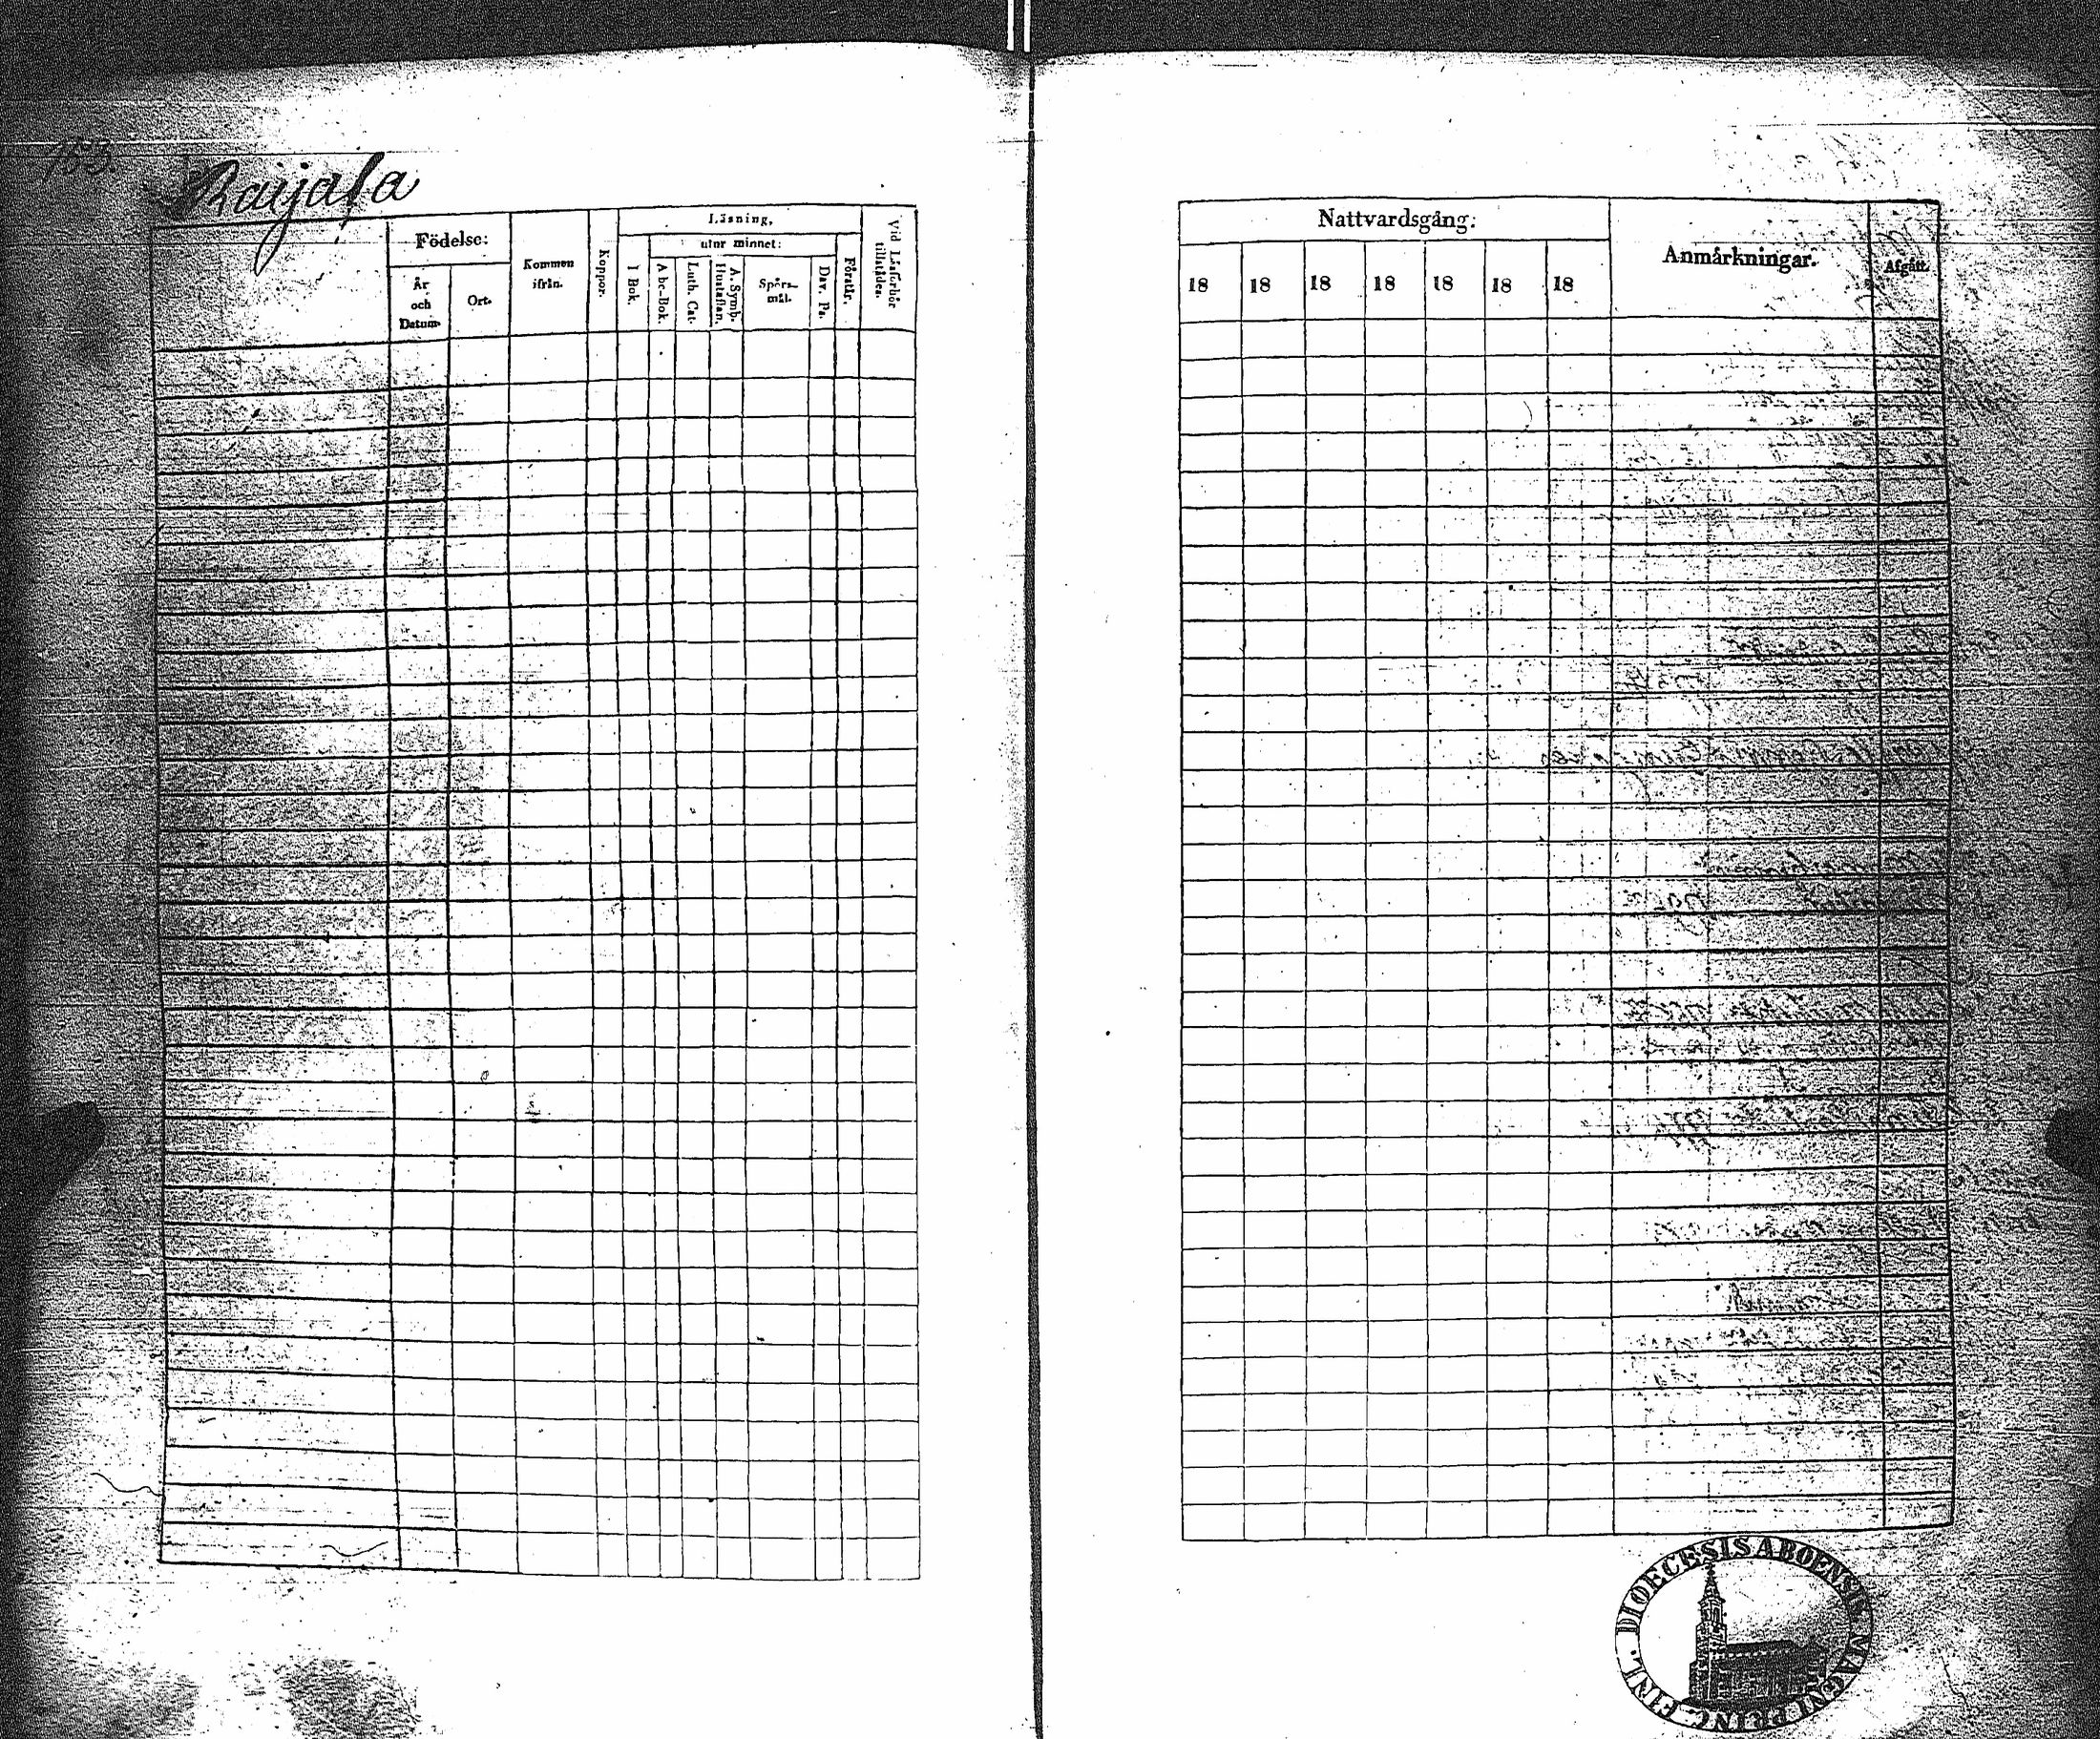 153.
Raijala
Födelse:
År
och
Datum.
Ort.
Kommen
ifrån.
Koppor.
Läsning,
utur minnet:
I Bok.
Abc-Bok.
Luth. Cat.
A. Symb.
Hustaflan.
Spörs-
mål.
Dav. Ps.
Förstår.
Vid Läsförhör
tillstädes.
Nattvardsgång:
18 18 18 18 18 18 18
Anmärkningar.
Afgått.
DIOECESIS ABOENSIS MAGNI PRINC. FINL.